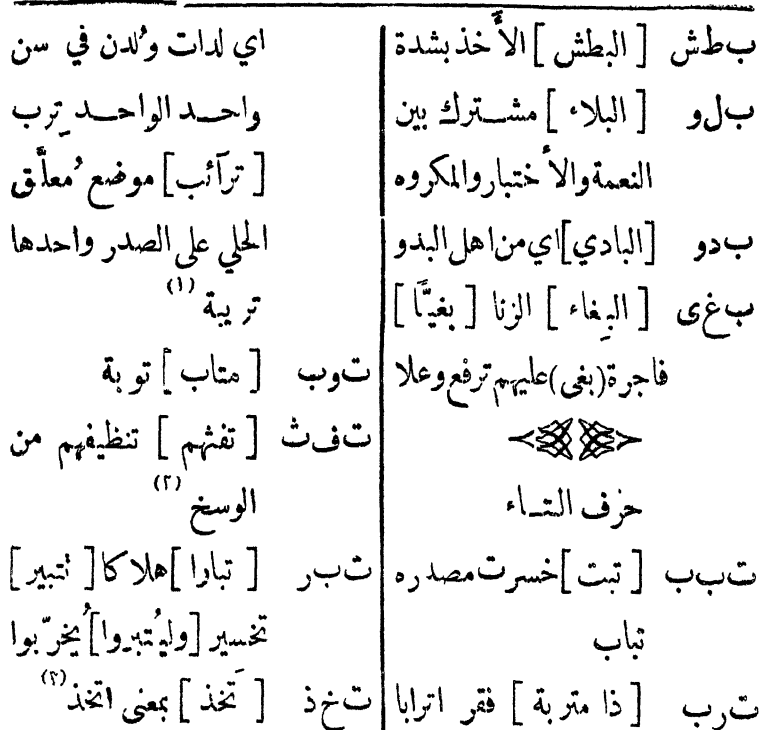 ب ط ش [ البطش ] الأخذ بشدة
ب ل و [ البلاء ] مشترك بين
النعمة والأختبار والمكروه
ب د و [البادي] اي من اهل البدو
ب غ ى [ البِغاء ] الزنا [ بغيًّا ]
فاجرة (بغى) عليهم ترفع وعلا
حرف التاء
ت ب ب [ تبت ] خسرت مصدره
تباب
ت ر ب [ ذا متربة ] فقر اترابا
اي لدات وُلدن في سن
واحد الواحد تِرب
[ ترآئب ] موضع مُعلَّق
الحلي على الصدر واحدها
تريبة (١)
ت و ب [ متاب ] توبة
ت ف ث [ تفثهم ] تنظيفهم من
الوسخ (٢)
ت ب ر [ تبارا ] هلاكا [ تتبير ]
تخسير [وليُتبروا] يُخرّبوا
ت خ ذ [ تَخذ ] بمعنى اتخذ (٣)